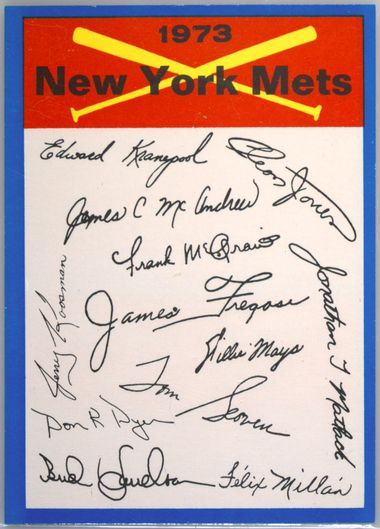 1973
New York Mets
Edward Kranepool
Cleon Jones
James C McAndrew
Frank McGraw
Jerry Koosman
James Fregosi
Jonathan T Matlack
Willie Mays
Tom Seaver
Don R Dyer
Bud Harrelson
Félix Millán